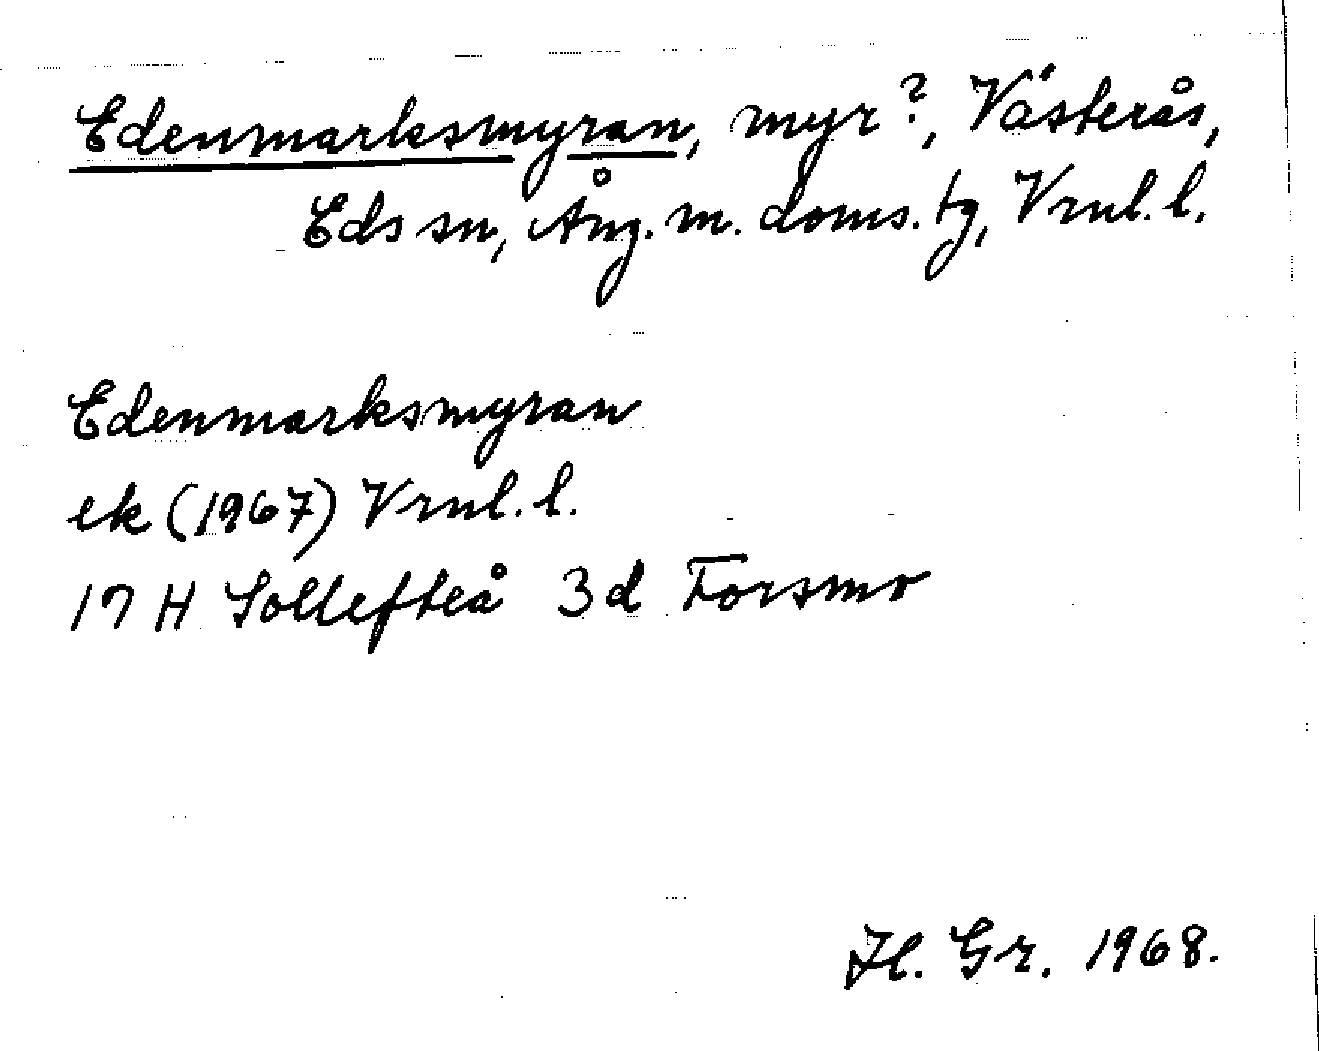 Edenmarksmyran, myr?, Västerås,
Eds sn, Ång. m. doms. tg, Vrnl. l.
Edenmarksmyran
ek (1967) Vrnl. l.
17 H Sollefteå 3d Forsmo
Hl. Gr. 1968.